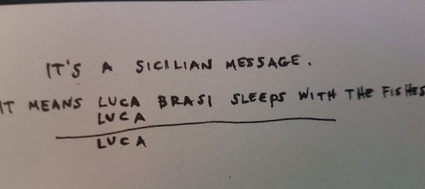 IT'S A SICILIAN MESSAGE.
IT MEANS LUCA BRASI SLEEPS WITH THE FISHES
LUCA
LUCA